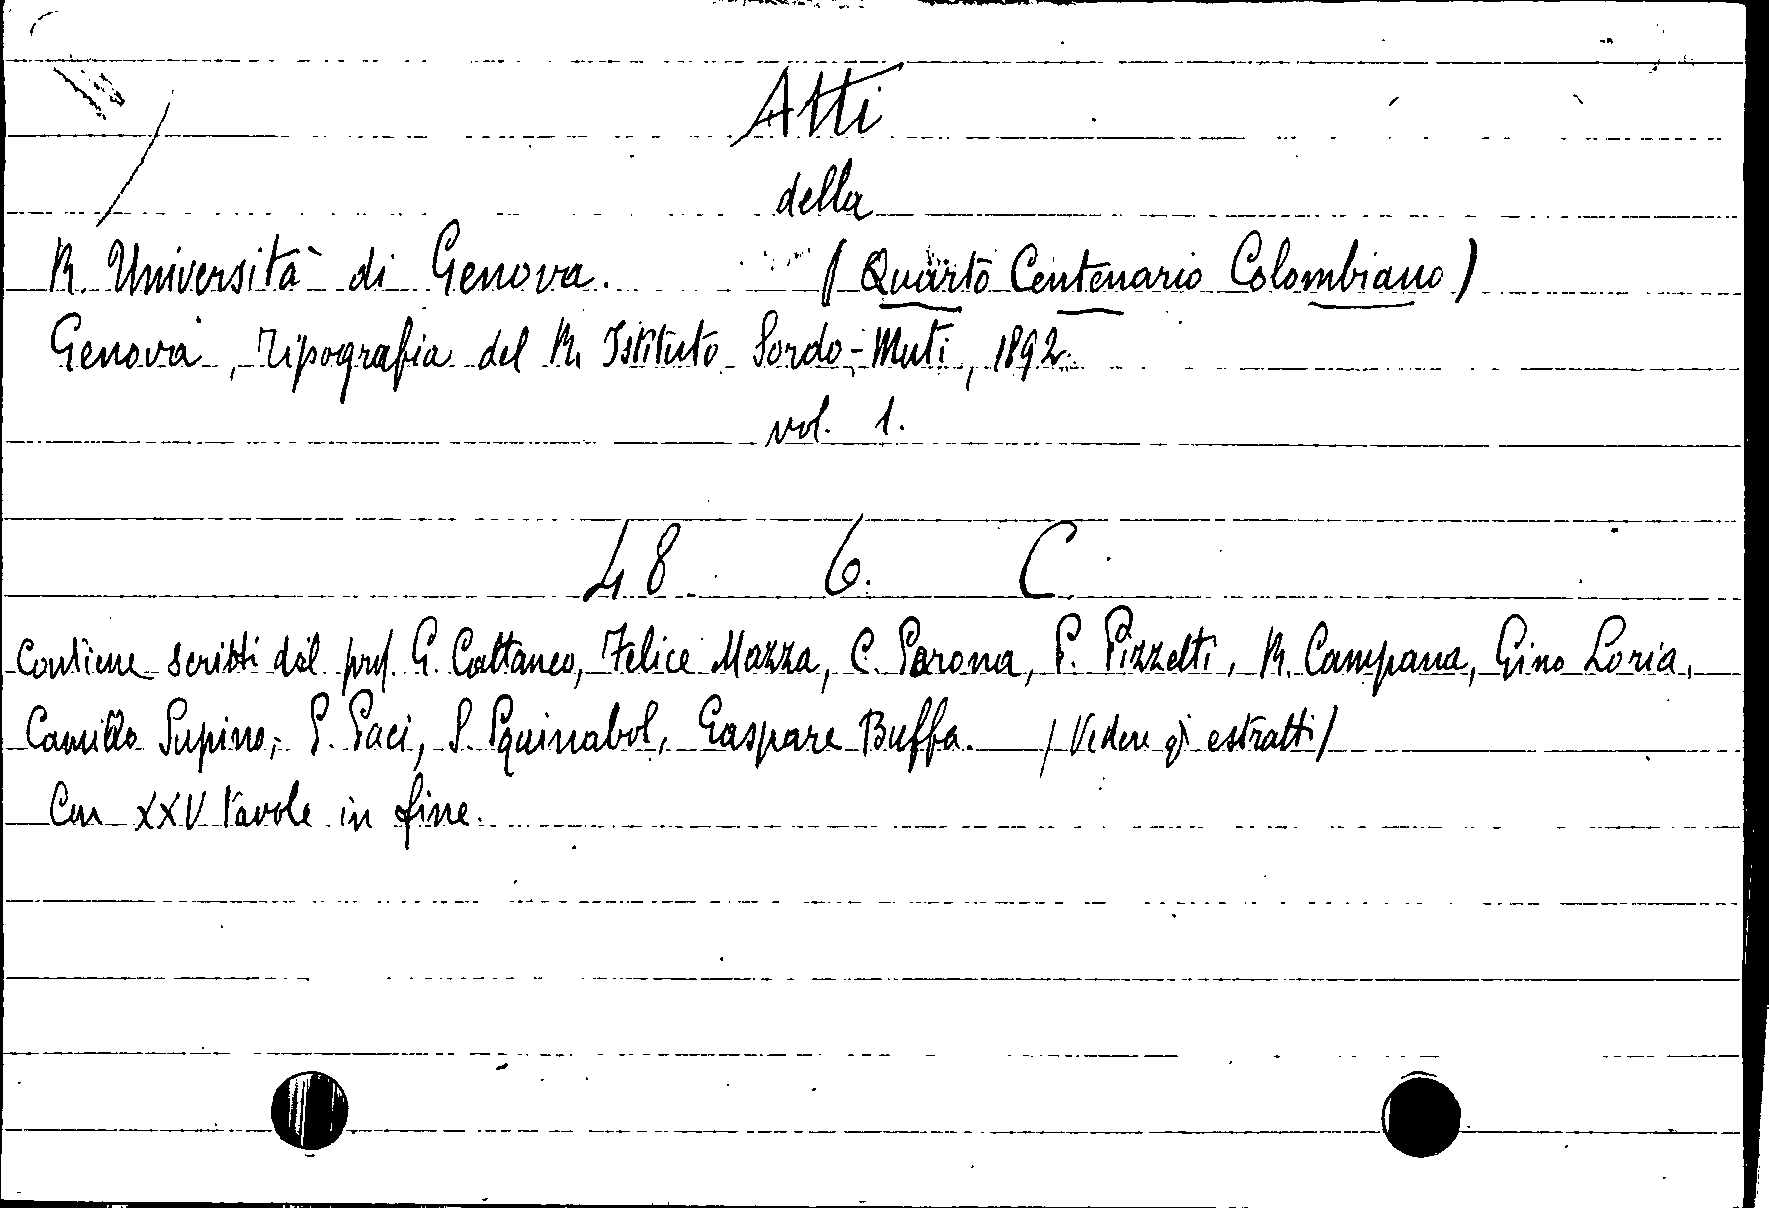 Atti
della
R. Università di Genova. (Quarto Centenario Colombiano)
Genova, Tipografia del R. Istituto Sordo-Muti, 1892.
vol. 1.
48. 6. C.
Contiene scritti del prof. G. Cattaneo, Felice Mazza, C. Parona, P. Pizzetti, R. Campana, Gino Loria,
Camillo Supino, P. Paci, S. Squinabol, Gaspare Buffa. /Vedere gi estratti/
Con XXV tavole in fine.